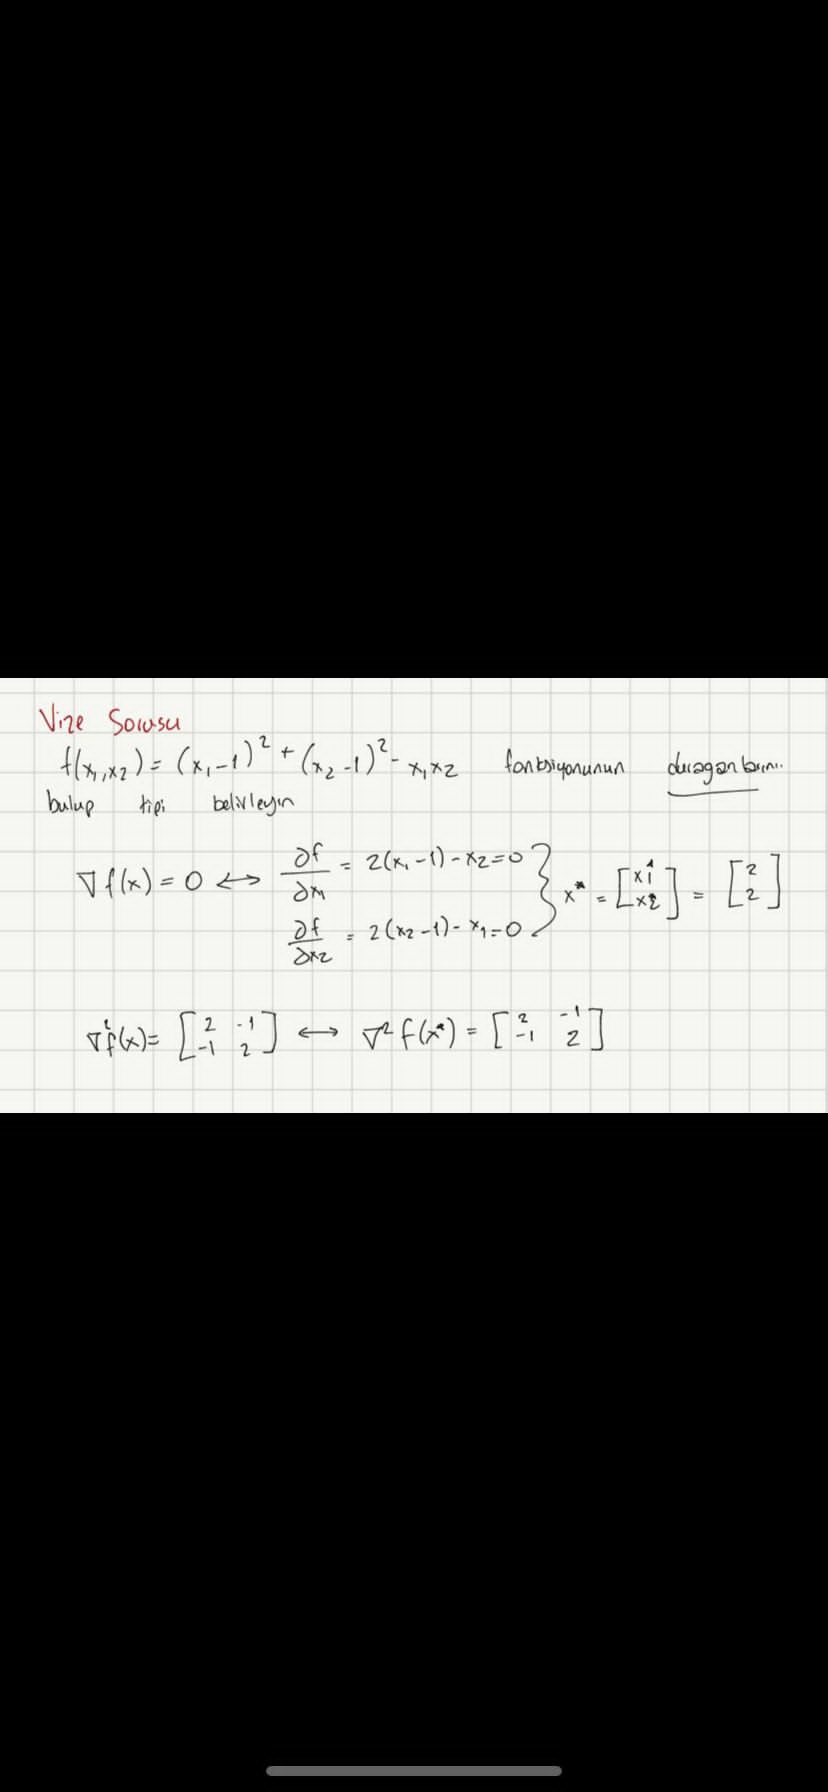 Vize Sorusu
f(x₁,x₂) = (x₁-1)² + (x₂-1)² - x₁x₂ fonksiyonunun
bulup tipi belirleyin
∇f(x) = 0 ↔ ∂f/∂x₁ = 2(x₁-1) - x₂ = 0 } x* = [x₁* x₂*] = [2 2]
∂f/∂x₂ = 2(x₂-1) - x₁ = 0
∇²f(x) = [2 -1 -1 2] ↔ ∇²f(x*) = [2 -1 -1 2]